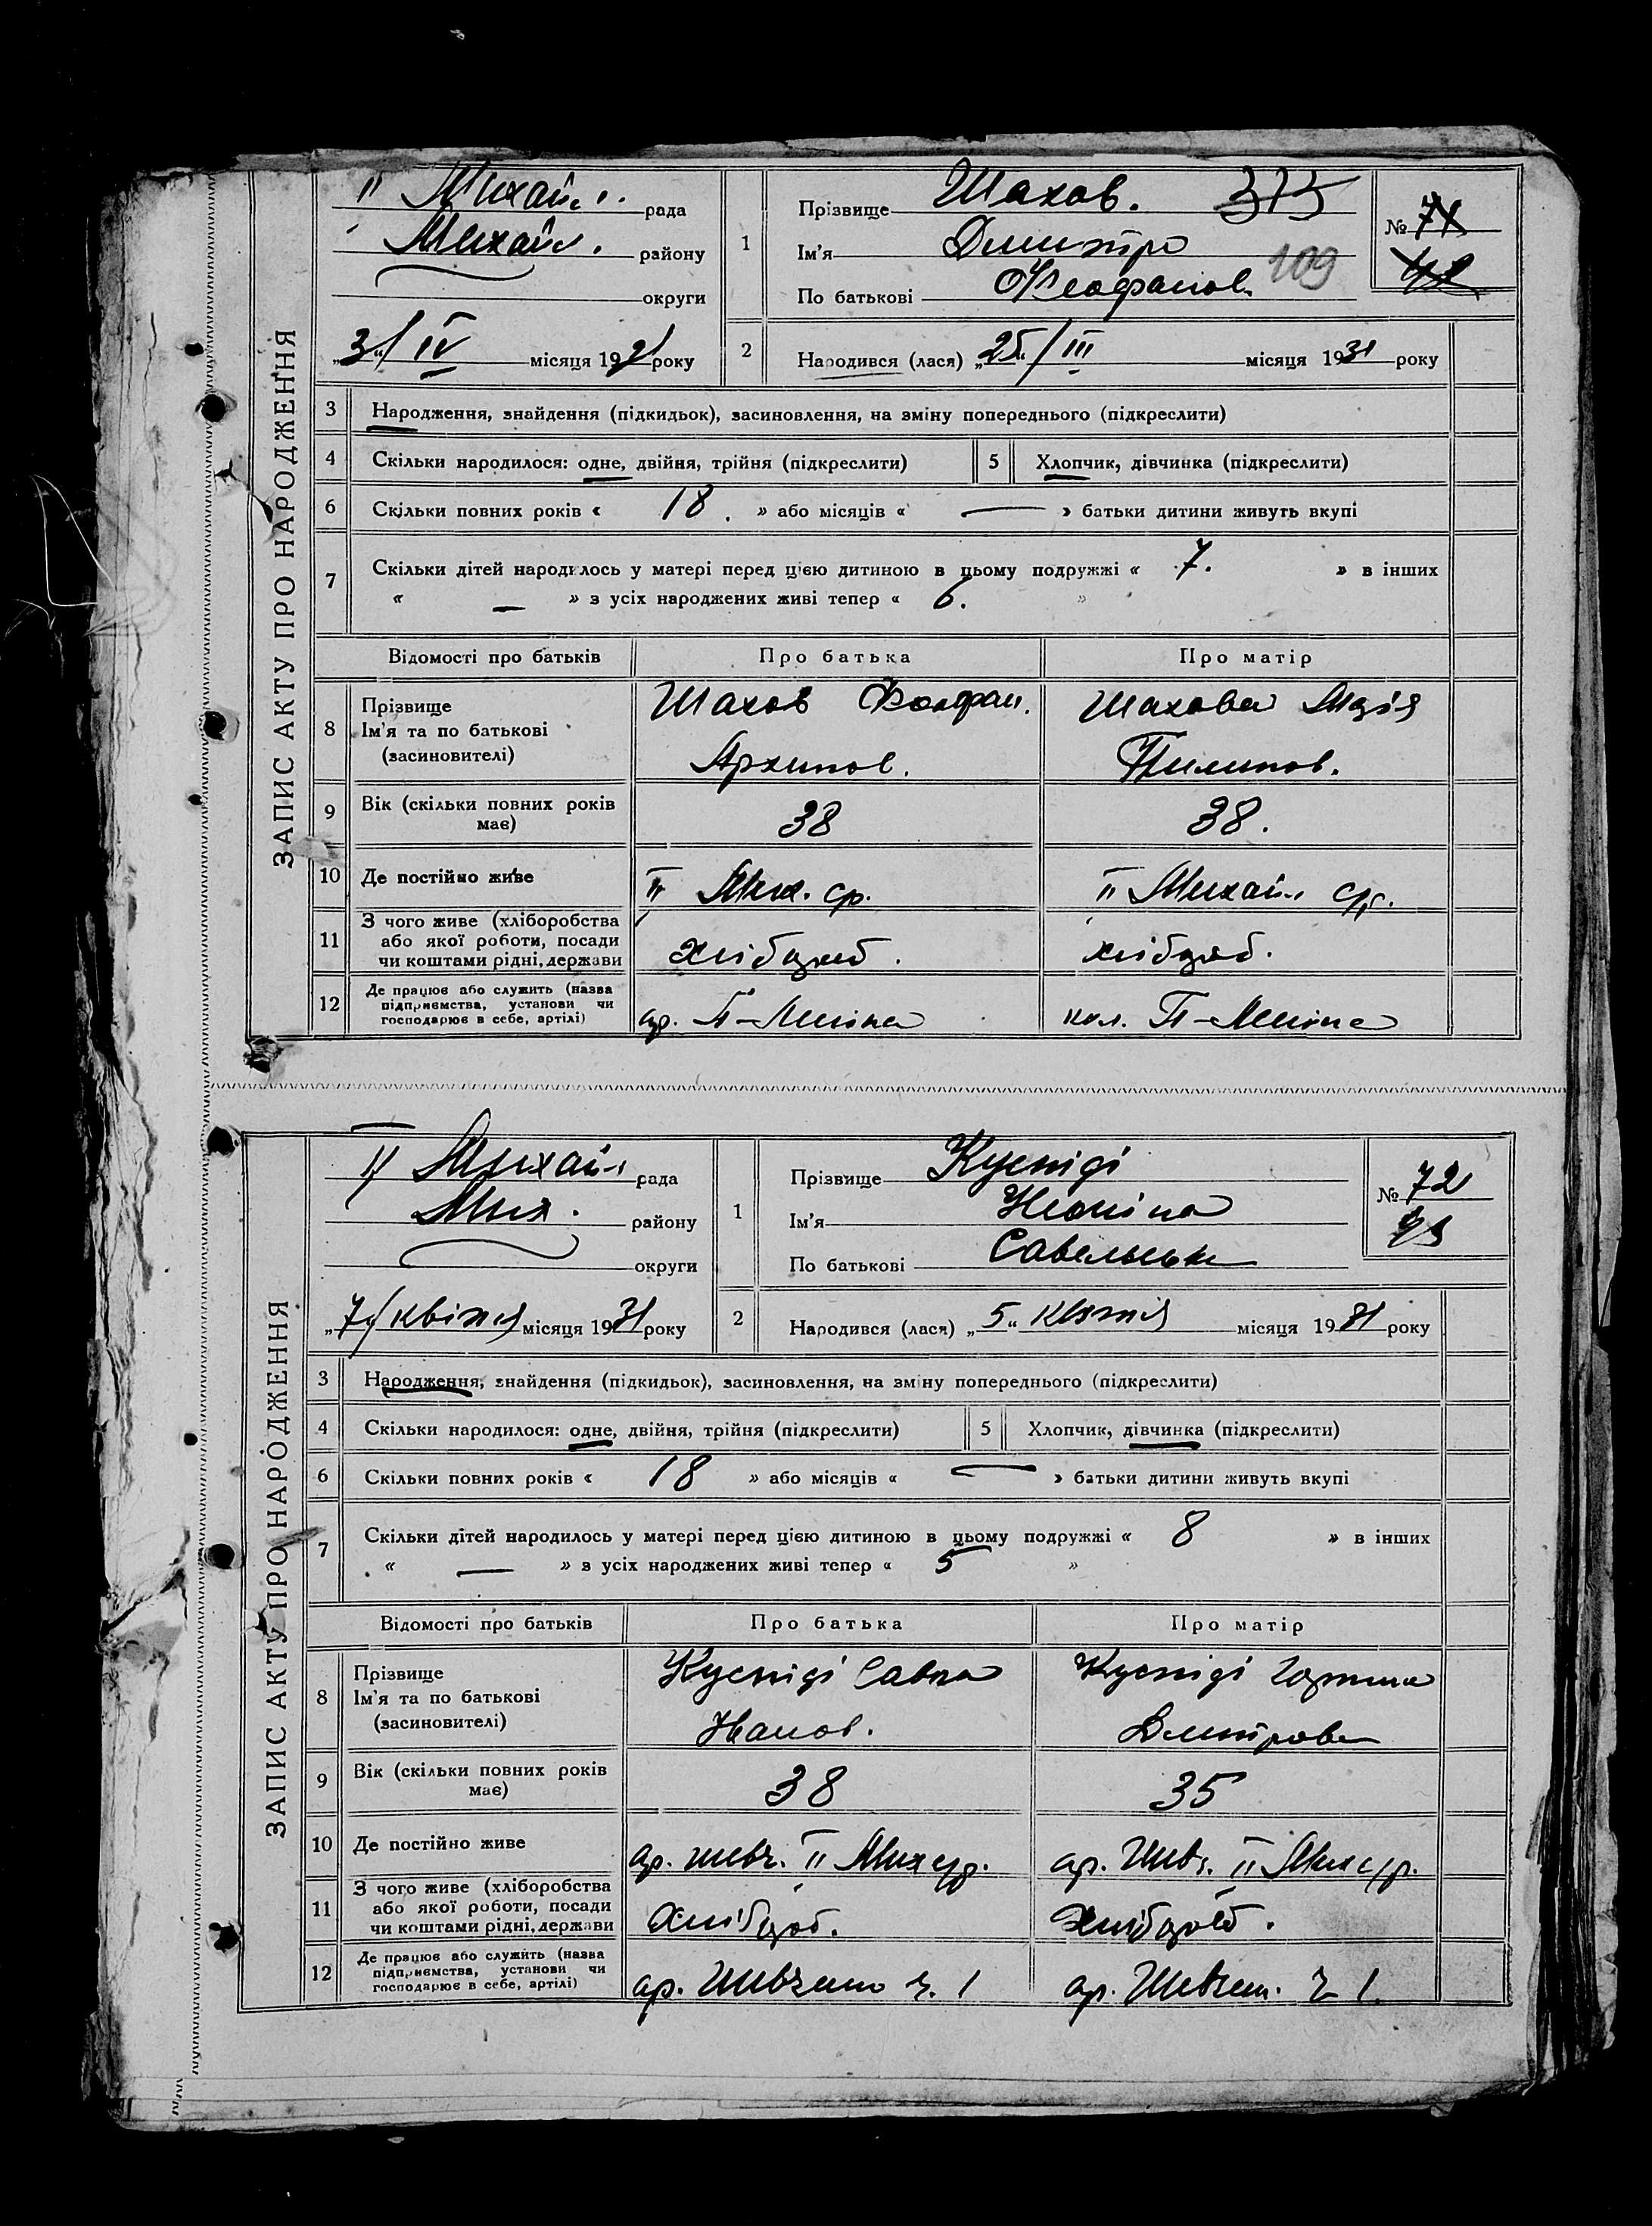 ЗАПИС АКТУ ПРО НАРОДЖЕННЯ
II Михайл. рада
Михайл. району
округи
„3“ IV місяця 1931 року
1
Прізвище Шахов. 373
Ім'я Дмитро
По батькові Феофанов. 109
№ 71
2 Народився (лася) „25“ III місяця 1931 року
3 Народження, знайдення (підкидьок), засиновлення, на зміну попереднього (підкреслити)
4 Скільки народилося: одне, двійня, трійня (підкреслити) 5 Хлопчик, дівчинка (підкреслити)
6 Скільки повних років « 18. » або місяців « — » батьки дитини живуть вкупі
7 Скільки дітей народилось у матері перед цією дитиною в цьому подружжі « 7. » в інших
« — » з усіх народжених живі тепер « 6. »
Відомості про батьків Про батька Про матір
8 Прізвище
Ім'я та по батькові
(засиновителі)
Шахов Феофан.
Архипов.
Шахова Марія
Пилипов.
9 Вік (скільки повних років має) 38 38.
10 Де постійно живе II Мих. ср. II Михайл ср.
11 З чого живе (хліборобства
або якої роботи, посади
чи коштами рідні, держави
хлібороб. хлібороб.
12 Де працює або служить (назва
підприємства, установи чи
господарює в себе, артілі)
ар. кол.
ЗАПИС АКТУ ПРО НАРОДЖЕННЯ
II Михайл рада
Мих. району
округи
„7“ квітня місяця 1931 року
1
Прізвище Кусніді
Ім'я
По батькові Савельевна
№ 72
2 Народився (лася) „5“ квітня місяця 1931 року
3 Народження, знайдення (підкидьок), засиновлення, на зміну попереднього (підкреслити)
4 Скільки народилося: одне, двійня, трійня (підкреслити) 5 Хлопчик, дівчинка (підкреслити)
6 Скільки повних років « 18 » або місяців « — » батьки дитини живуть вкупі
7 Скільки дітей народилось у матері перед цією дитиною в цьому подружжі « 8 » в інших
« — » з усіх народжених живі тепер « 5 »
Відомості про батьків Про батька Про матір
8 Прізвище
Ім'я та по батькові
(засиновителі)
Кусніді Савка
Іванов.
Кусніді
Дмитрова
9 Вік (скільки повних років має) 38 35
10 Де постійно живе ар. Шевч. II Мих ср. ар. Шевч. II Мих ср.
11 З чого живе (хліборобства
або якої роботи, посади
чи коштами рідні, держави
хлібороб. хлібороб.
12 Де працює або служить (назва
підприємства, установи чи
господарює в себе, артілі)
ар. Шевченко ч. 1 ар. Шевчен. ч 1